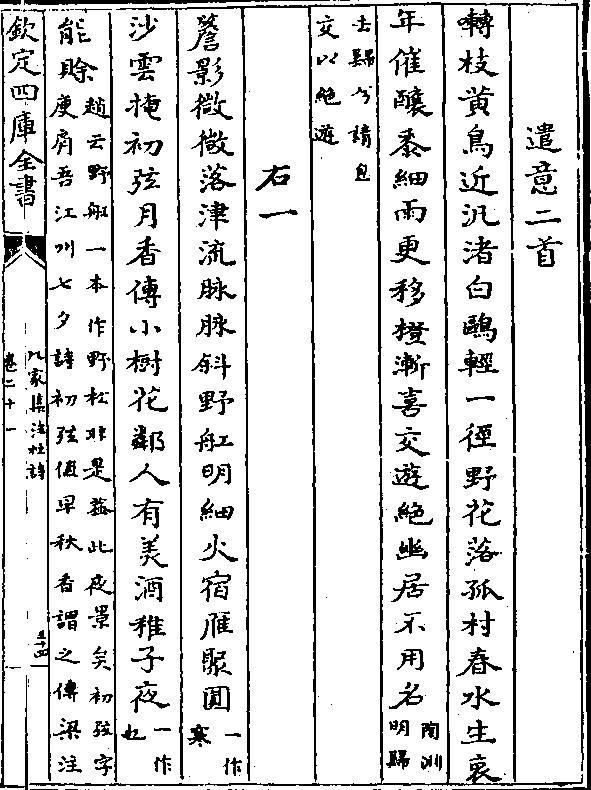 遣意二首
囀枝黄鳥近汎渚白鷗輕一徑野花落孤村春水生衰
年催釀黍細雨更移橙漸喜交遊絶幽居不用名
陶淵
明歸
去歸兮請息
交以絶遊
右一
簷影微微落津流脉脉斜野舡明細火宿雁聚圓
一作
寒
沙雲掩初弦月香傳小樹花鄰人有美酒稚子夜
一作
也
能賖
趙云野舡一本作野松非是葢此夜景矣初弦字
庾肩吾江州七夕詩初弦值早秋香謂之傳梁注
欽定四庫全書
九家集注杜詩
卷二十一
三十四